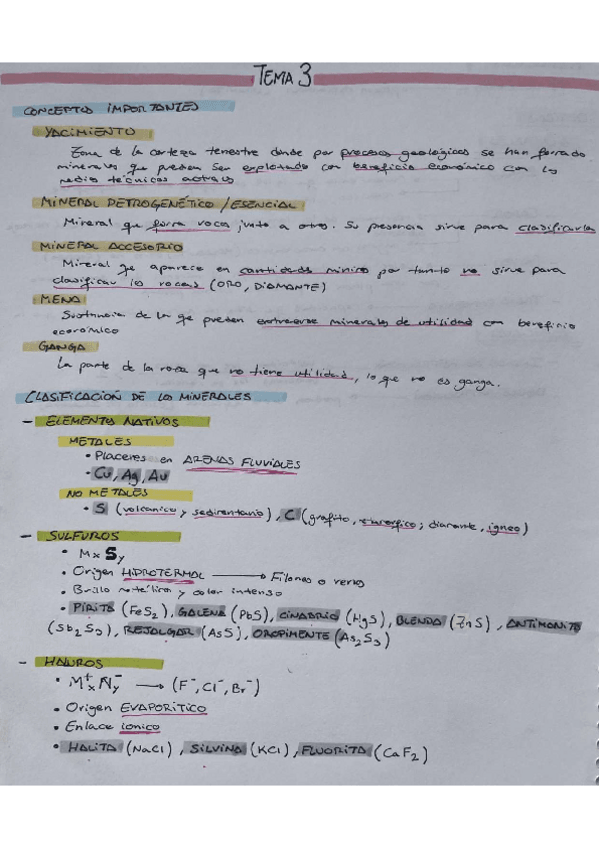 TEMA 3
CONCEPTOS IMPORTANTES
YACIMIENTO
Zona de la corteza terrestre donde por procesos geológicos se han formado
minerales que pueden ser explotados con beneficio económico con los
medios técnicos actuales
MINERAL PETROGENÉTICO / ESENCIAL
Mineral que forma rocas junto a otros. Su presencia sirve para clasificarlas
MINERAL ACCESORIO
Mineral que aparece en cantidades mínimas por tanto no sirve para
clasificar las rocas (ORO, DIAMANTE)
MENA
Sustancia de la que pueden extraerse minerales de utilidad con beneficio
económico
GANGA
La parte de la roca que no tiene utilidad, lo que no es ganga.
CLASIFICACIÓN DE LOS MINERALES
- ELEMENTOS NATIVOS
METALES
• Placeres en ARENAS FLUVIALES
- Cu, Ag, Au
NO METALES
• S (volcánico y sedimentario), C (grafito, ; diamante, ígneo)
- SULFUROS
• MxSy
• Origen HIDROTERMAL → Filones o venas
• Brillo metálico y color intenso
• PIRITA (FeS2), GALENA (PbS), CINABRIO (HgS), BLENDA (ZnS), ANTIMONITA
(Sb2S3), REJALGAR (AsS), OROPIMENTE (As2S3)
- HALUROS
• M+x N-y → (F-, Cl-, Br-)
• Origen EVAPORÍTICO
• Enlace iónico
• HALITA (NaCl), SILVINA (KCl), FLUORITA (CaF2)